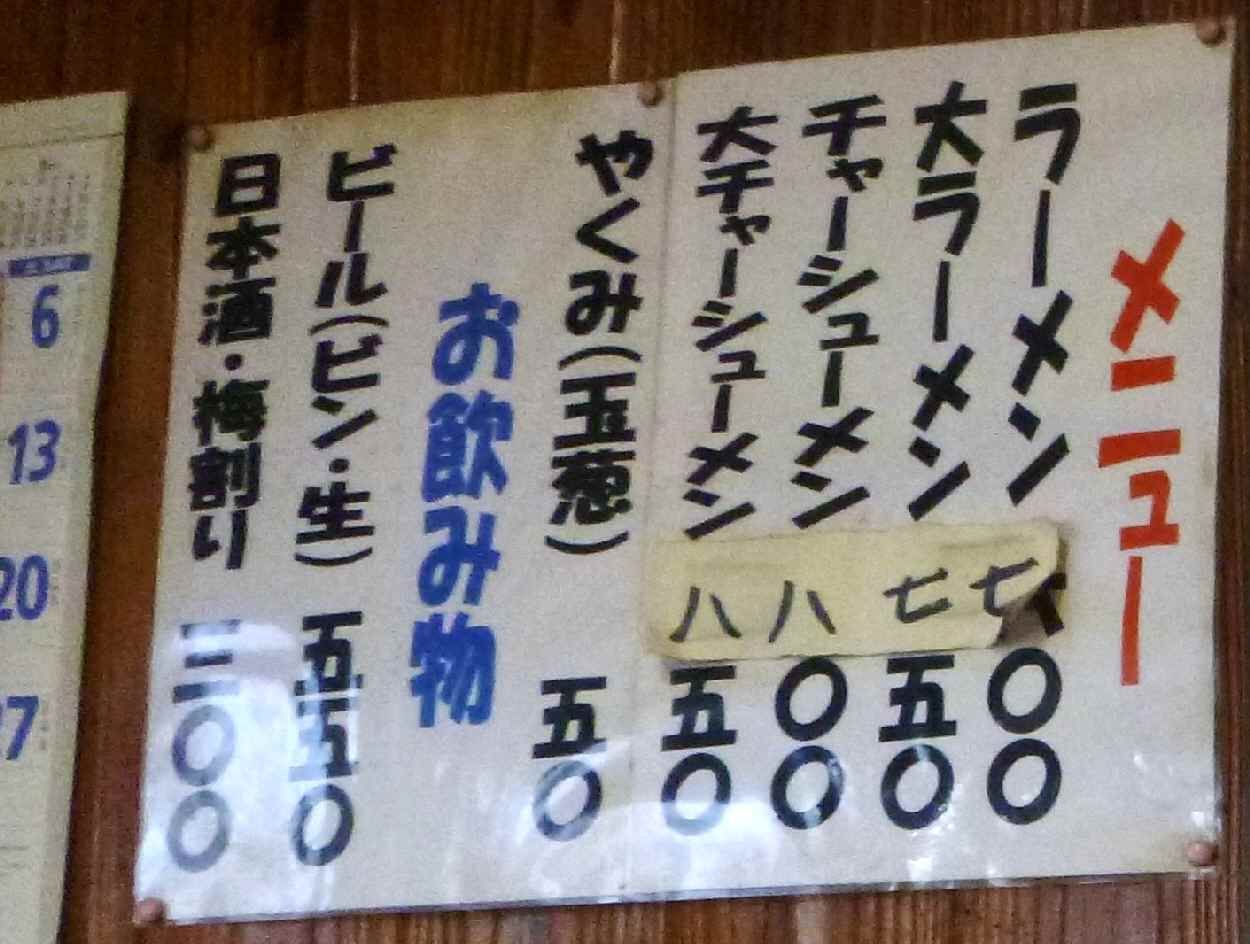 メニュー
ラーメン 七〇〇
大ラーメン 七五〇
チャーシューメン 八〇〇
大チャーシューメン 八五〇
やくみ(玉葱) 五〇
お飲み物
ビール(ビン・生) 五五〇
日本酒・梅割り 三〇〇
6
13
20